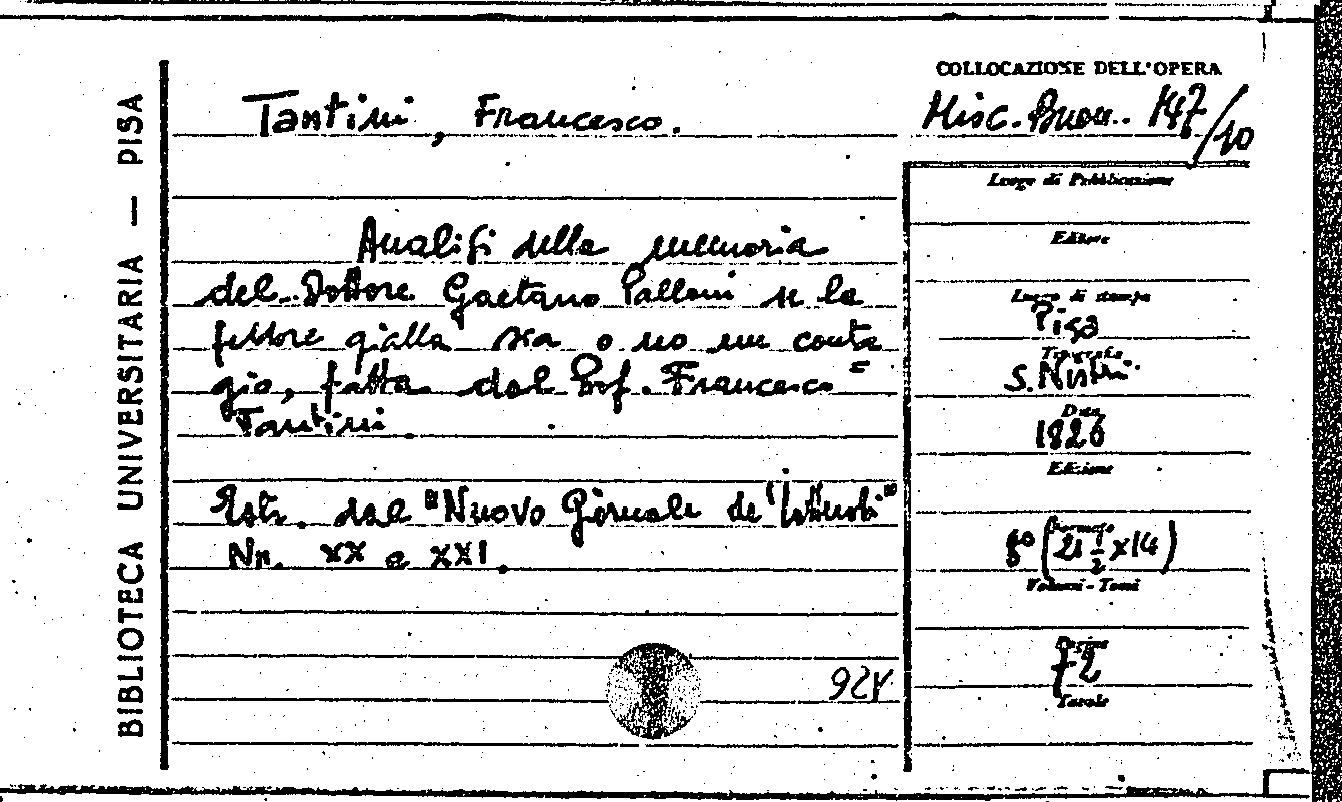 BIBLIOTECA UNIVERSITARIA — PISA
Tantini, Francesco.
Analisi della memoria
del Dottore Gaetano Palloni se la
febbre gialla sia o no un conta=
gio, fatta dal Prof. Francesco
Tantini.
Estr. dal "Nuovo Giornale de' Letterati"
Nn. XX e XXI.
COLLOCAZIONE DELL'OPERA
Misc. Buon. 147/10
Luogo di Pubblicazione
Editore
Luogo di stampa
Pisa
Tipografia
S. Nistri
Data
1826
Edizione
Formato
8º (21 1/2 x 14)
Volumi - Tomi
Pagine
72
Tavole